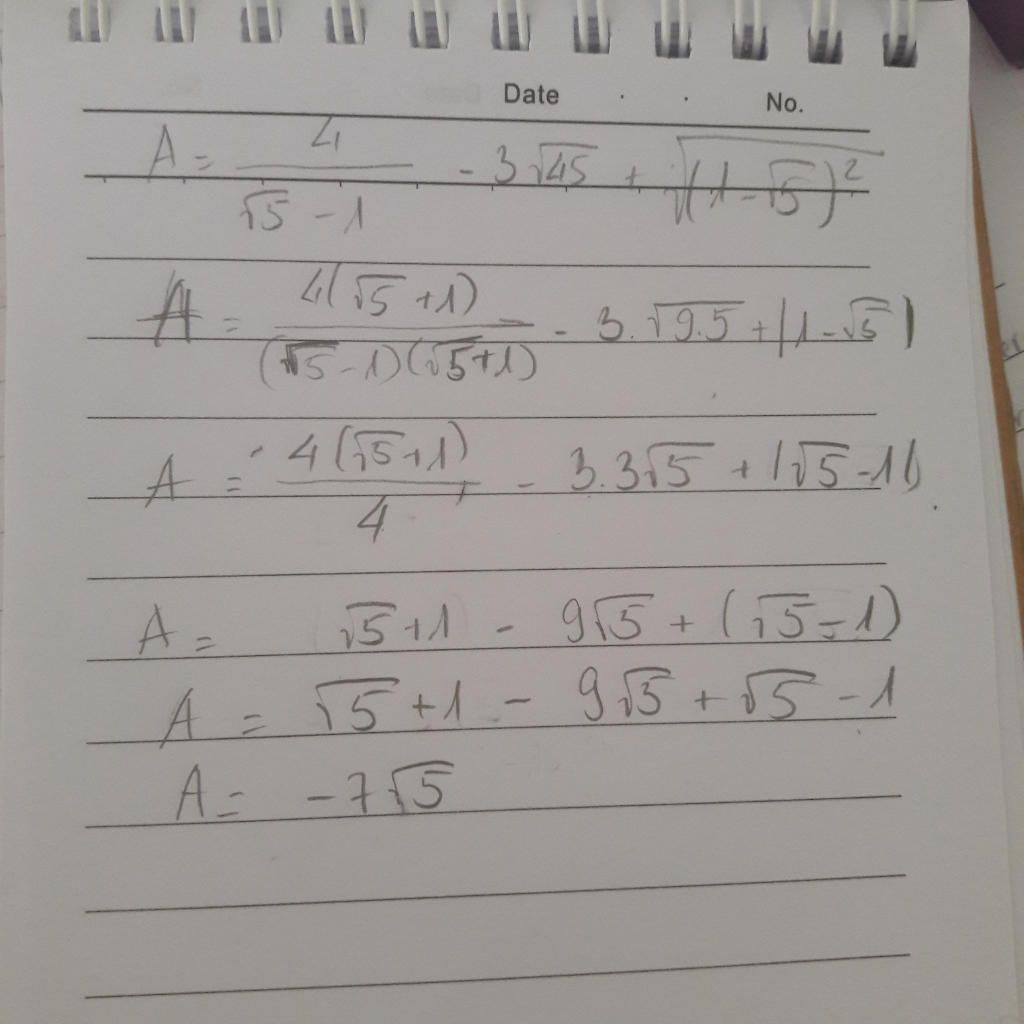 Date . . No.
A = 4/(√5 - 1) - 3√45 + √((1 - √5)²)
A = 4(√5 + 1)/((√5 - 1)(√5 + 1)) - 3.√9.5 + |1 - √5|
A = 4(√5 + 1)/4 - 3.3√5 + |√5 - 1|
A = √5 + 1 - 9√5 + (√5 - 1)
A = √5 + 1 - 9√5 + √5 - 1
A = -7√5